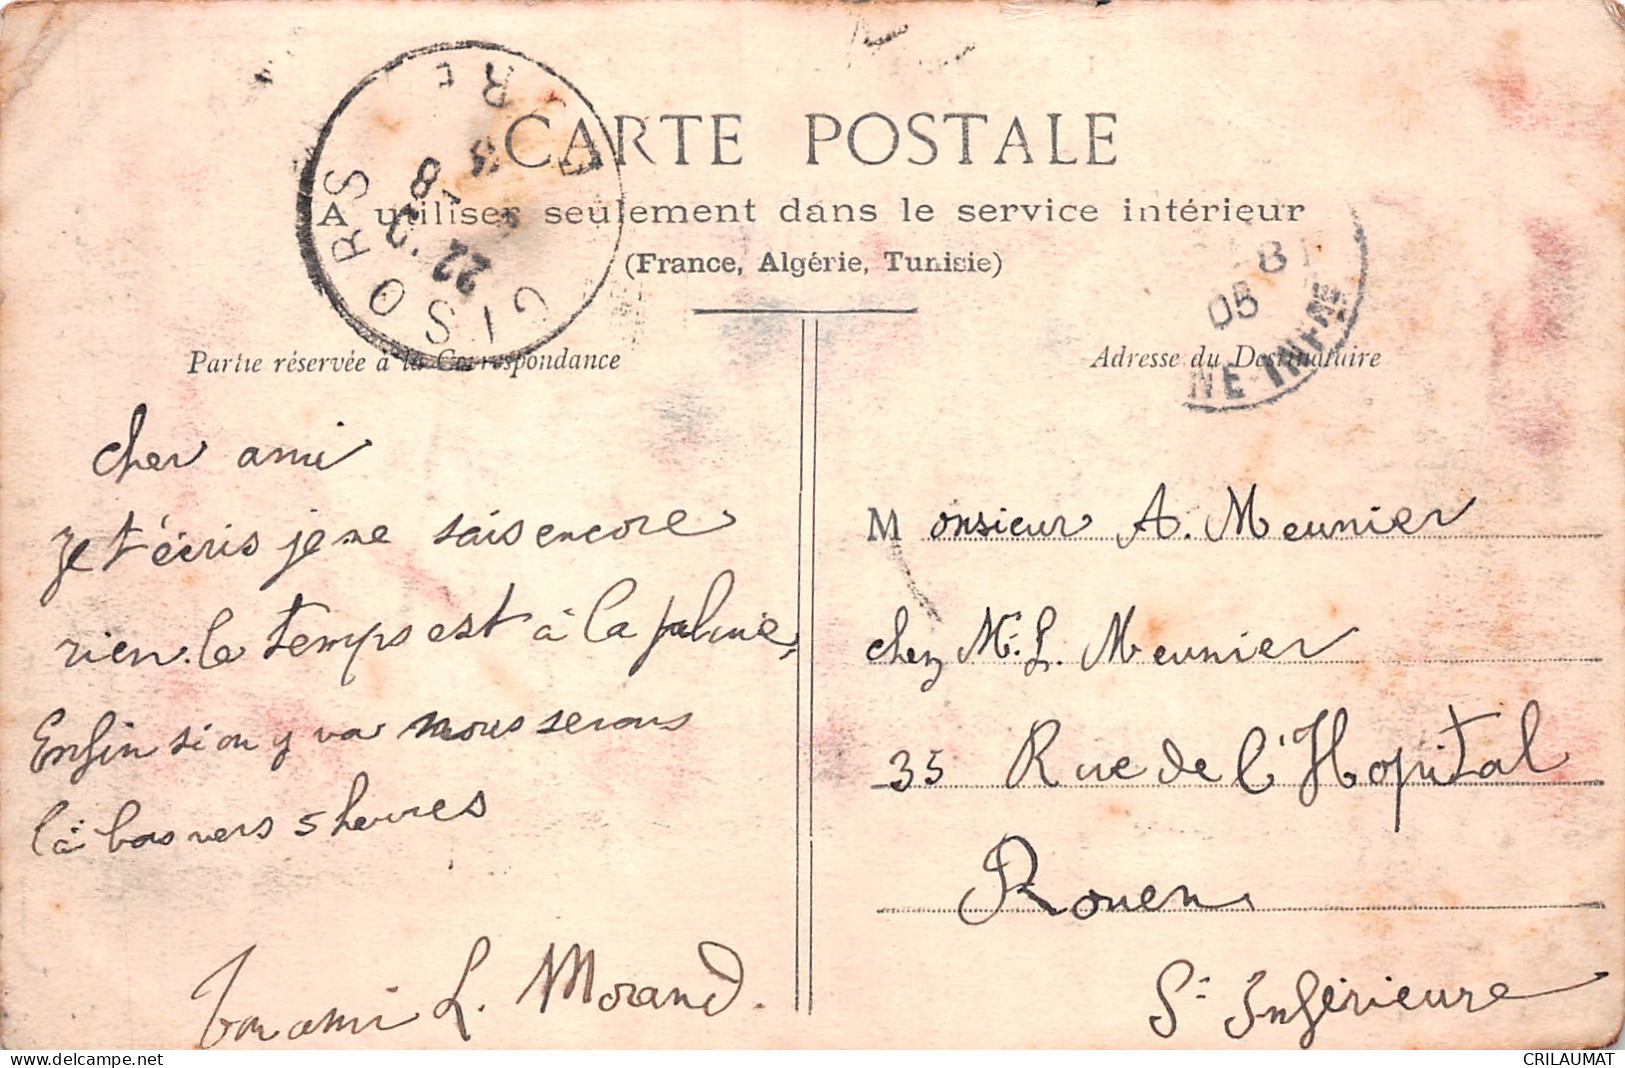 CARTE POSTALE
A utiliser seulement dans le service intérieur
(France, Algérie, Tunisie)
GISORS
EURE
22
8
Partie réservée à la Correspondance
Adresse du Destinataire
05
NE-INFRE
cher ami
Je t'écris je ne sais encore
rien. le temps est à la pluie,
Enfin si on y va nous serons
là bas vers 5 heures
Ton ami L. Morand.
Monsieur A. Meunier
chez Mr. L. Meunier
35 Rue de l'Hopital
Rouen
Se Inférieure
CRILAUMAT